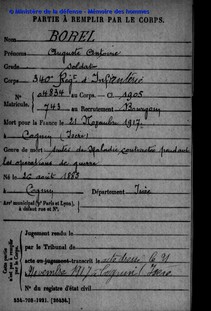 © Ministère de la défense - Mémoire des hommes
PARTIE À REMPLIR PAR LE CORPS.
Nom BOREL
Prénoms Auguste Antoine
Grade Soldat
Corps 340e Régt d'Infanterie
N° 04834 au Corps. — Cl 1905
Matricule. 743 au Recrutement Bourgoin
Mort pour la France le 21 Novembre 1917
à (Isère)
Genre de mort suites de Maladie contractée pendant
les opérations de guerre
Né le 20 août 1885
à Département Isère
Arrt municipal (pr Paris et Lyon),
à défaut rue et N°.
Cette partie
n'est pas à remplir
par le Corps.
Jugement rendu le
par le Tribunal de
acte ou jugement transcrit le 21
Novembre 1917 à Isère
N° du registre d'état civil
534-708-1921. [26434.]